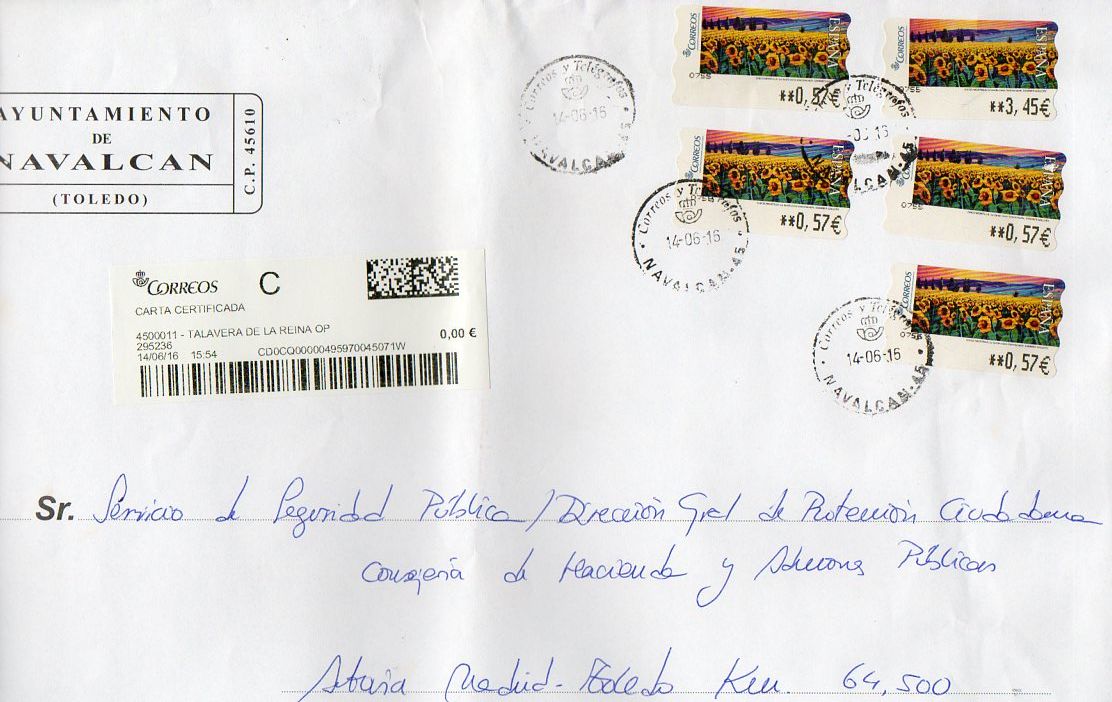 AYUNTAMIENTO
DE
NAVALCAN
(TOLEDO)
C.P. 45610
CORREOS
0755
**0,57€
CORREOS
ESPAÑA
**3,45€
ESPAÑA
0755
**0,57€
CORREOS
ESPAÑA
0755
**0,57€
CORREOS
ESPAÑA
0755
**0,57€
Correos y Telégrafos
14-06-16
NAVALCAN.45
Correos y Telégrafos
NAVALCAN.45
Correos y Telégrafos
14-06-16
NAVALCAN.45
Correos y Telégrafos
14-06-16
NAVALCAN.45
CORREOS C
CARTA CERTIFICADA
4500011 - TALAVERA DE LA REINA OP
295236 0,00 €
14/06/16 15:54 CD0CQ00000495970045071W
Sr. Servicio de Seguridad Pública / Dirección Gral de Protección Ciudadana
Consejería de Hacienda y Admones Públicas
Autovía Madrid-Toledo Km. 64,500